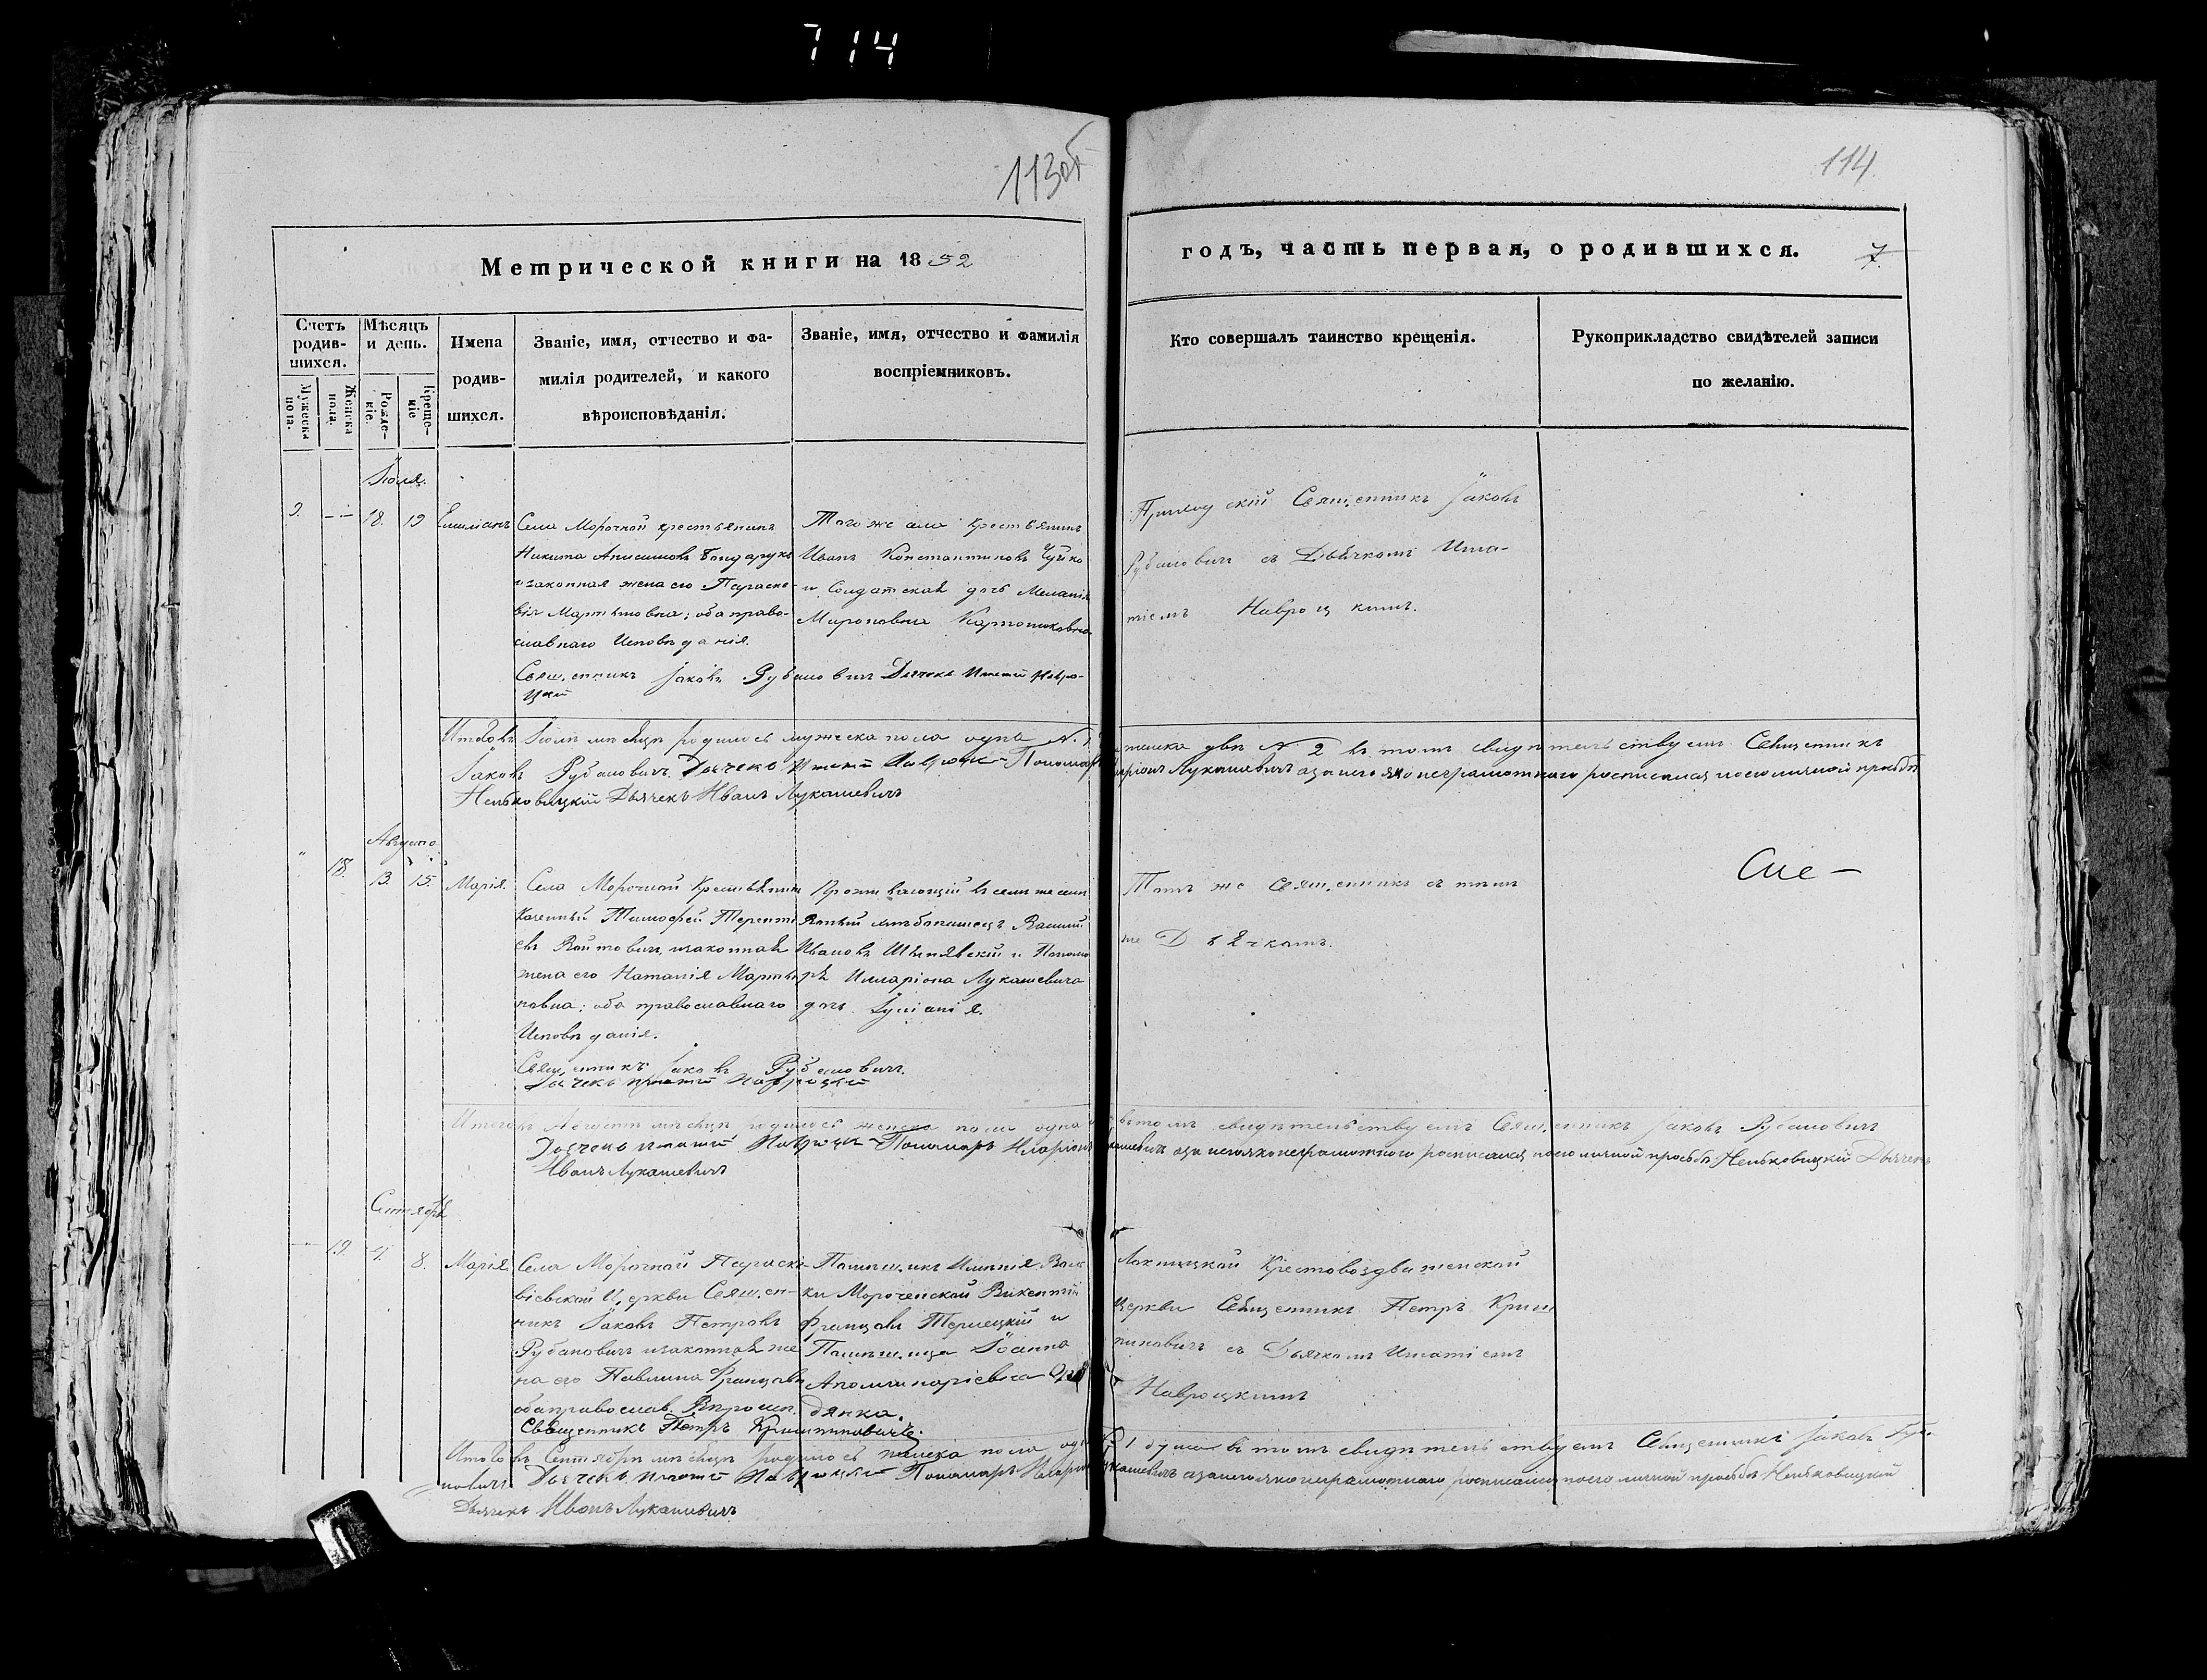 714
113об
114
Метрической книги на 1852
годъ, часть первая, о родившихся.
7.
Счетъ родив-шихся.
Мужеска пола.
Женска пола.
Мѣсяцъ и день.
Рожде-ніе.
Креще-ніе
Имена родив-шихся.
Званіе, имя, отчество и фа-
милія родителей, и какого
вѣроисповѣданія.
Званіе, имя, отчество и фамилія
воспріемниковъ.
Кто совершалъ таинство крещенія.
Рукоприкладство свидѣтелей записи
по желанію.
Іюля.
9. 18. 19
Села Морочной крестьянинъ
Никита Анисимовъ Бондарукъ
и законная жена его Параске-
вія Мартиновна; оба право-
славнаго Исповѣданія.
Священникъ Іаковъ Рубановичъ Дьячекъ Игнатій Навро-
цкій
Того же села крестьянинъ
Иванъ Константиновъ Чуйко
и Солдатская дочь Меланія
Мироновна
Приходскій Священникъ Іаковъ
Рубановичъ съ Дьячкомъ Игна-
тіемъ Навроцкимъ.
Итого въ Іюлѣ мѣсяцѣ родилось мужеска пола одна № 1 женска двѣ № 2 въ томъ свидѣтельствуемъ Священникъ
Іаковъ Рубановичъ Дьячекъ Игнатій Навроцкій Пономарь Иларіонъ Лукашевичъ а за него яко неграмотнаго росписался по его личной просьбѣ
Неньковицкій Дьячекъ Иванъ Лукашевичъ
Августа
18. 13. 15. Марія.
Села Морочной Крестьянинъ
Казенный Тимофей Терентi
евъ Войтовичъ, и законная
жена его Наталія Марты
новна; оба православнаго
Исповѣданія.
Священникъ Іаковъ Рубановичъ.
Дьячекъ Игнатій Навроцкій
Проживающій въ семъ же селѣ
Ивановъ и Понома
рѣ Илларіона Лукашевича
дочь
Тотъ же Священникъ съ тѣмъ
же Дьячкомъ.
Итого въ Августѣ мѣсяцѣ родилось женска пола одна въ томъ свидѣтельствуемъ Священникъ Іаковъ Рубановичъ
Дьячекъ Игнатій Навроцкій Пономарь Иларіонъ Лукашевичъ а за него яко неграмотнаго росписался по его личной просьбѣ Неньковицкій Дьячекъ
Иванъ Лукашевичъ
Сентября
19. 4. 8. Марія.
Села Морочной Параске-
віевской Церкви Священ-
никъ Іаковъ Петровъ
Рубановичъ и законная же
на его Павлина Францовна
оба православ. Вѣроисп.
Священникъ Петръ
Помѣщикъ Имѣнія
ки Мороченской Викентій
Францовъ Терлецкій и
Помѣщица Іоанна
Аполинаріевна
Крестовоздвиженской
Церкви Священникъ Петръ
съ Дьячкомъ Игнатіемъ
Навроцкимъ
Итого въ Сентябрѣ мѣсяцѣ родилось женска пола одна № 1 душа въ томъ свидѣтельствуемъ Священникъ Іаковъ Руба-
новичъ Дьячекъ Игнатій Навроцкій Пономарь Иларіонъ Лукашевичъ а за него яко неграмотнаго росписался по его личной просьбѣ Неньковицкій
Дьячекъ Иванъ Лукашевичъ